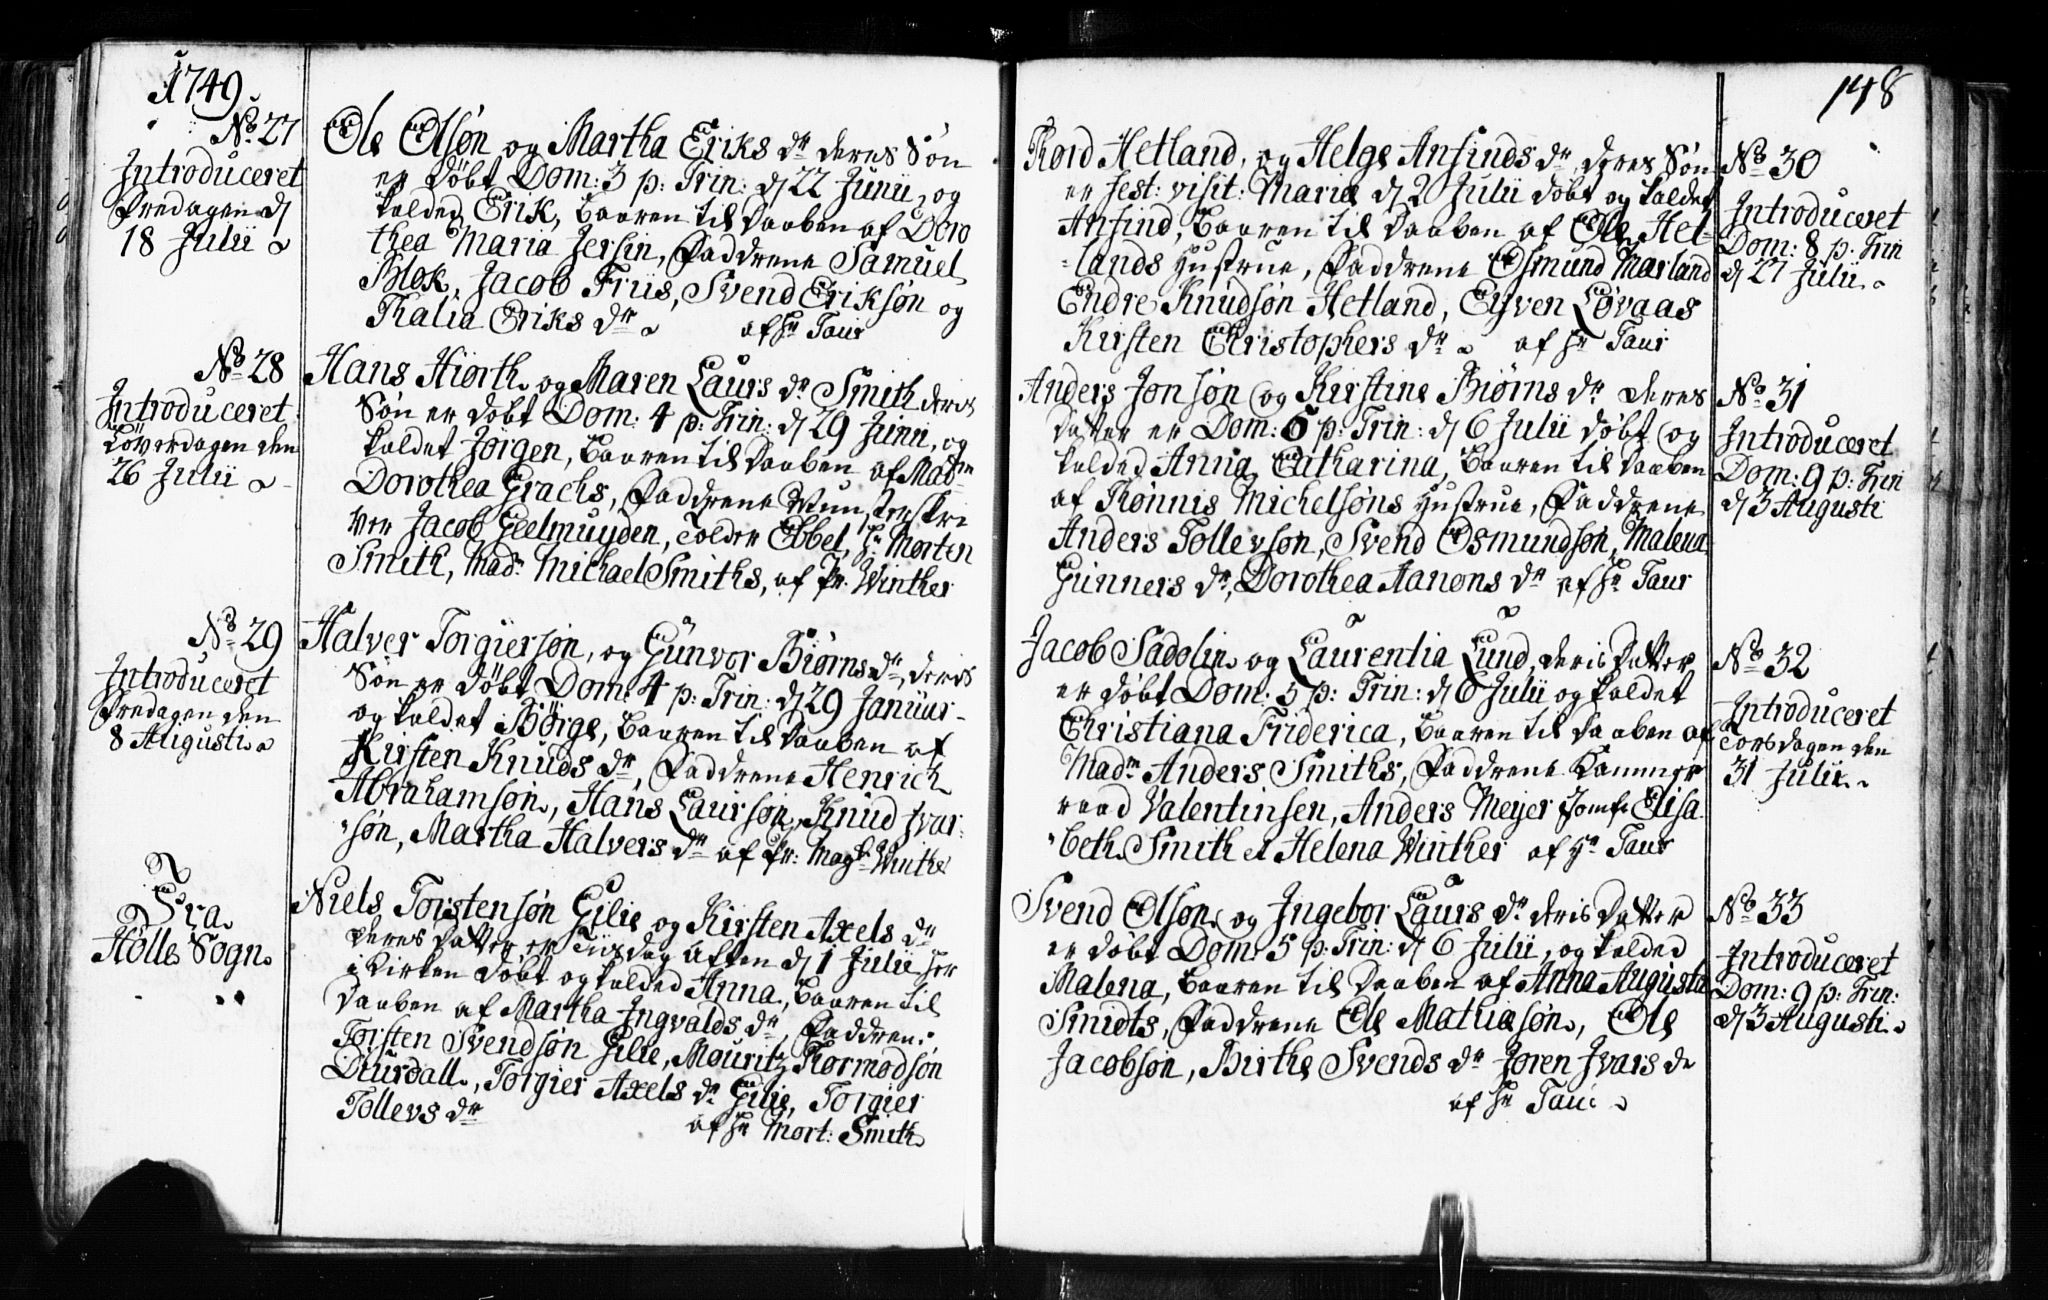 1749.
No. 27
Introduceret
Fredagen d
18 Julii
Ole Olsøn og Martha Eriks dr deres Søn
er døbt Dom: 3 p: Trin: d 22 Junii, og
kaldet Erik, baaren til daaben af Doro
thea Maria Jersin, Faddrene Samuel
Blok, Jacob Friis, Svend Eriksøn og
Thalia Eriks dr af Hr Taur
No. 28
Introduceret
Löverdagen den
26 Julii
Hans Hiorth og Maren Laurs dr Smith deres
Søn er døbt Dom: 4 p: Trin: d 29 Junii, og
kaldet Jörgen, baaren til daaben af Madm
Dorothea Grachs, Faddrene Munsterskri
ver Jacob Geelmuyden, Tolder Ebbel, Hr Morten
Smith, Madm Michael Smiths, af Pr. Winther
No. 29
Introduceret
Fredagen den
8 Augusti
Halver Torgiersøn, og Günvor Biørns dr, deres
Søn er døbt Dom: 4 p: Trin: d 29 Januar
og kaldet Börge, baaren til daaben af
Kirsten Knuds dr, Faddrene Henrich
Abrahamsøn, Hans Laursøn, Knud Ivar-
søn, Martha Halvers dr af Pr: Magr Winther
Fra
Hølle Sogn
Niels Torstensøn Gilie og Kirsten Axels dr
deres datter er Tiisdag aften d 1 Julii her
i kirken døbt og kaldet Anna, baaren til
daaben af Martha Ingvalds dr, Faddrene
Torsten Svendsøn Gilie, Mouritz Thormodsøn
Diursdall, Torgier Axels dr Gilie, Torgier
Tollevs dr af Hr Mort: Smith
148
Thord Hetland, og Helge Ansinds dr, deres Søn
er fest: visit: Mariæ d 2 Julii døbt og kaldet
Ansind, baaren til daaben af Ole Het-
lands Hustrue, Faddrene Osmund Marland
Endre Knudsøn Hetland, Eyven Løvaas
Kirsten Christophers dr af Hr Taur
No. 30
Introduceret
Dom: 8 p: Trin
d 27 Julii
Anders Jonsøn og Kirstine Biørns dr deres
datter er Dom: 5 p: Trin: d 6 Julii døbt og
kaldet Anna Catharina, baaren til daaben
af Thønnis Michelsøns Hustrue, Faddrene
Anders Tollevsøn, Svend Osmundsøn, Malena
Gunners dr, Dorothea Aanons dr af Hr Taur
No. 31
Introduceret
Dom: 9 p: Trin
d 3 Augusti
Jacob Sadolin og Laurentia Lund, deris datter
er døbt Dom: 5 p: Trin: d 6 Julii og kaldet
Christiana Friderica, baaren til daaben af
Madm Anders Smiths, Faddrene Kammer
raad Valentinsen, Anders Meyer Jomfr Elisa
beth Smith et Helena Winther af Hr Taur
No. 32
Introduceret
Torsdagen den
31 Julii
Svend Olsøn og Ingebor Laurs dr deris datter
er døbt Dom: 5 p: Trin: d 6 Julii, og kaldet
Malena, baaren til daaben af Anna Augusta
Smidts, Faddrene Ole Mathiesøn, Ole
Jacobsøn, Birthe Svends dr Joren Ivars dr
af Hr Taur
No. 33
Introduceret
Dom: 9 p: Trin:
d 3 Augusti